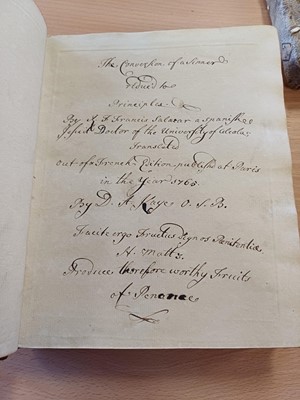 The Conversion of a Sinner
reduced to
Principles.
By R. F. Francis Salazar a Spanish
Jesuit Doctor of the University of
Translated
out of a French Edition publish'd at Paris
in the Year 1765
By D. A. Kaye O. S. B.
Facite ergo Fructus dignos Penitentiæ
St. Matt. 3.
Produce therefore worthy Fruits
of Penance